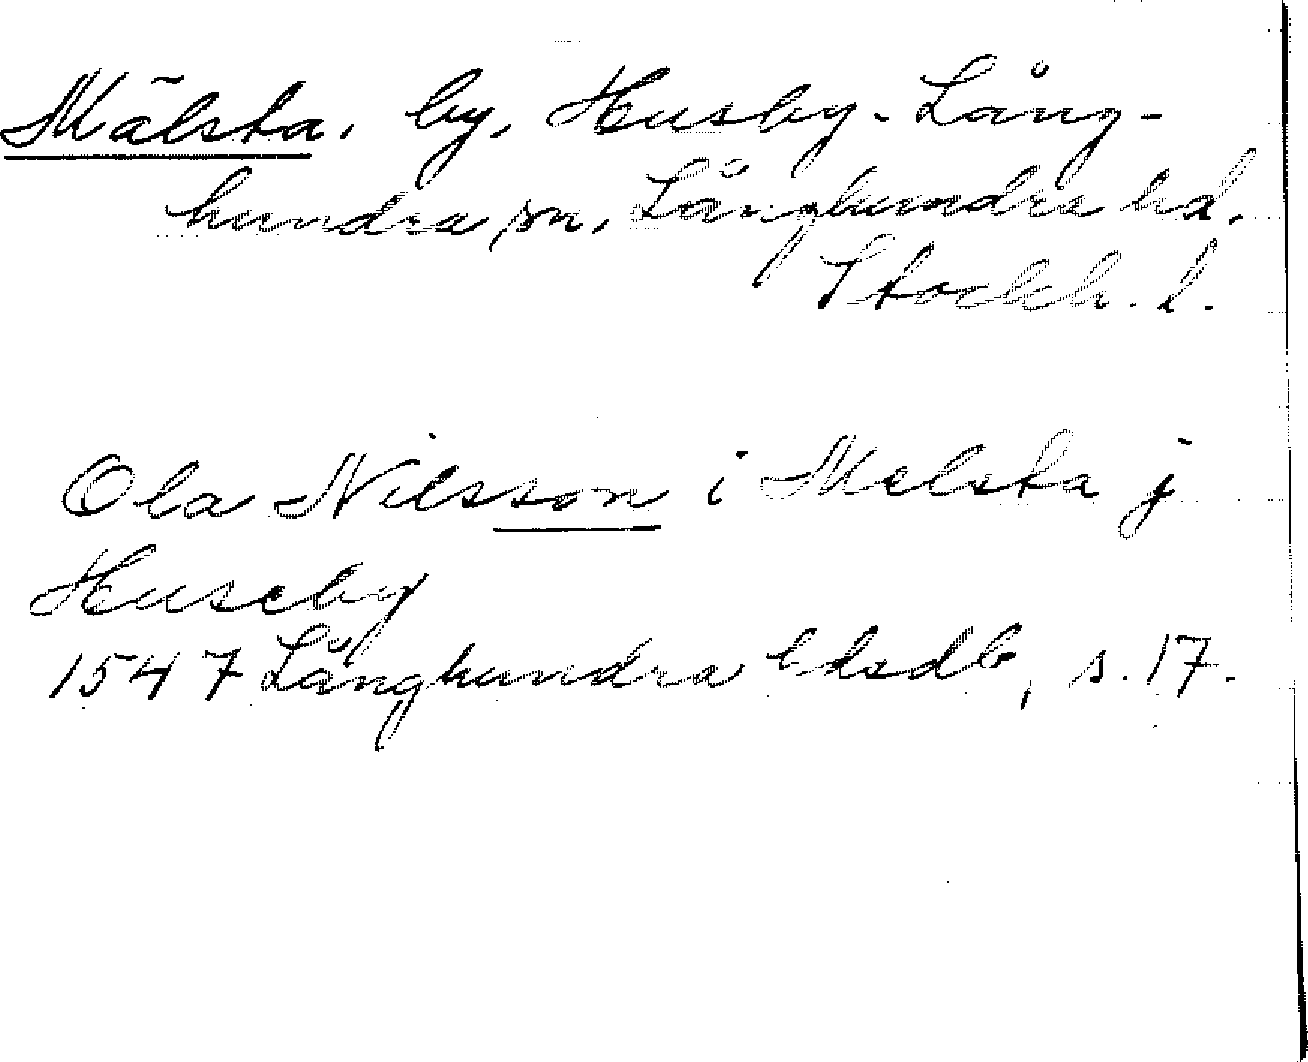 Mälsta, by, Husby-Lång-
hundra sn, Långhundra hd.
Stockh. l.
Ola Nilsson i Melsta j
Huseby
1547 Långhundra hdsdb, s. 17.